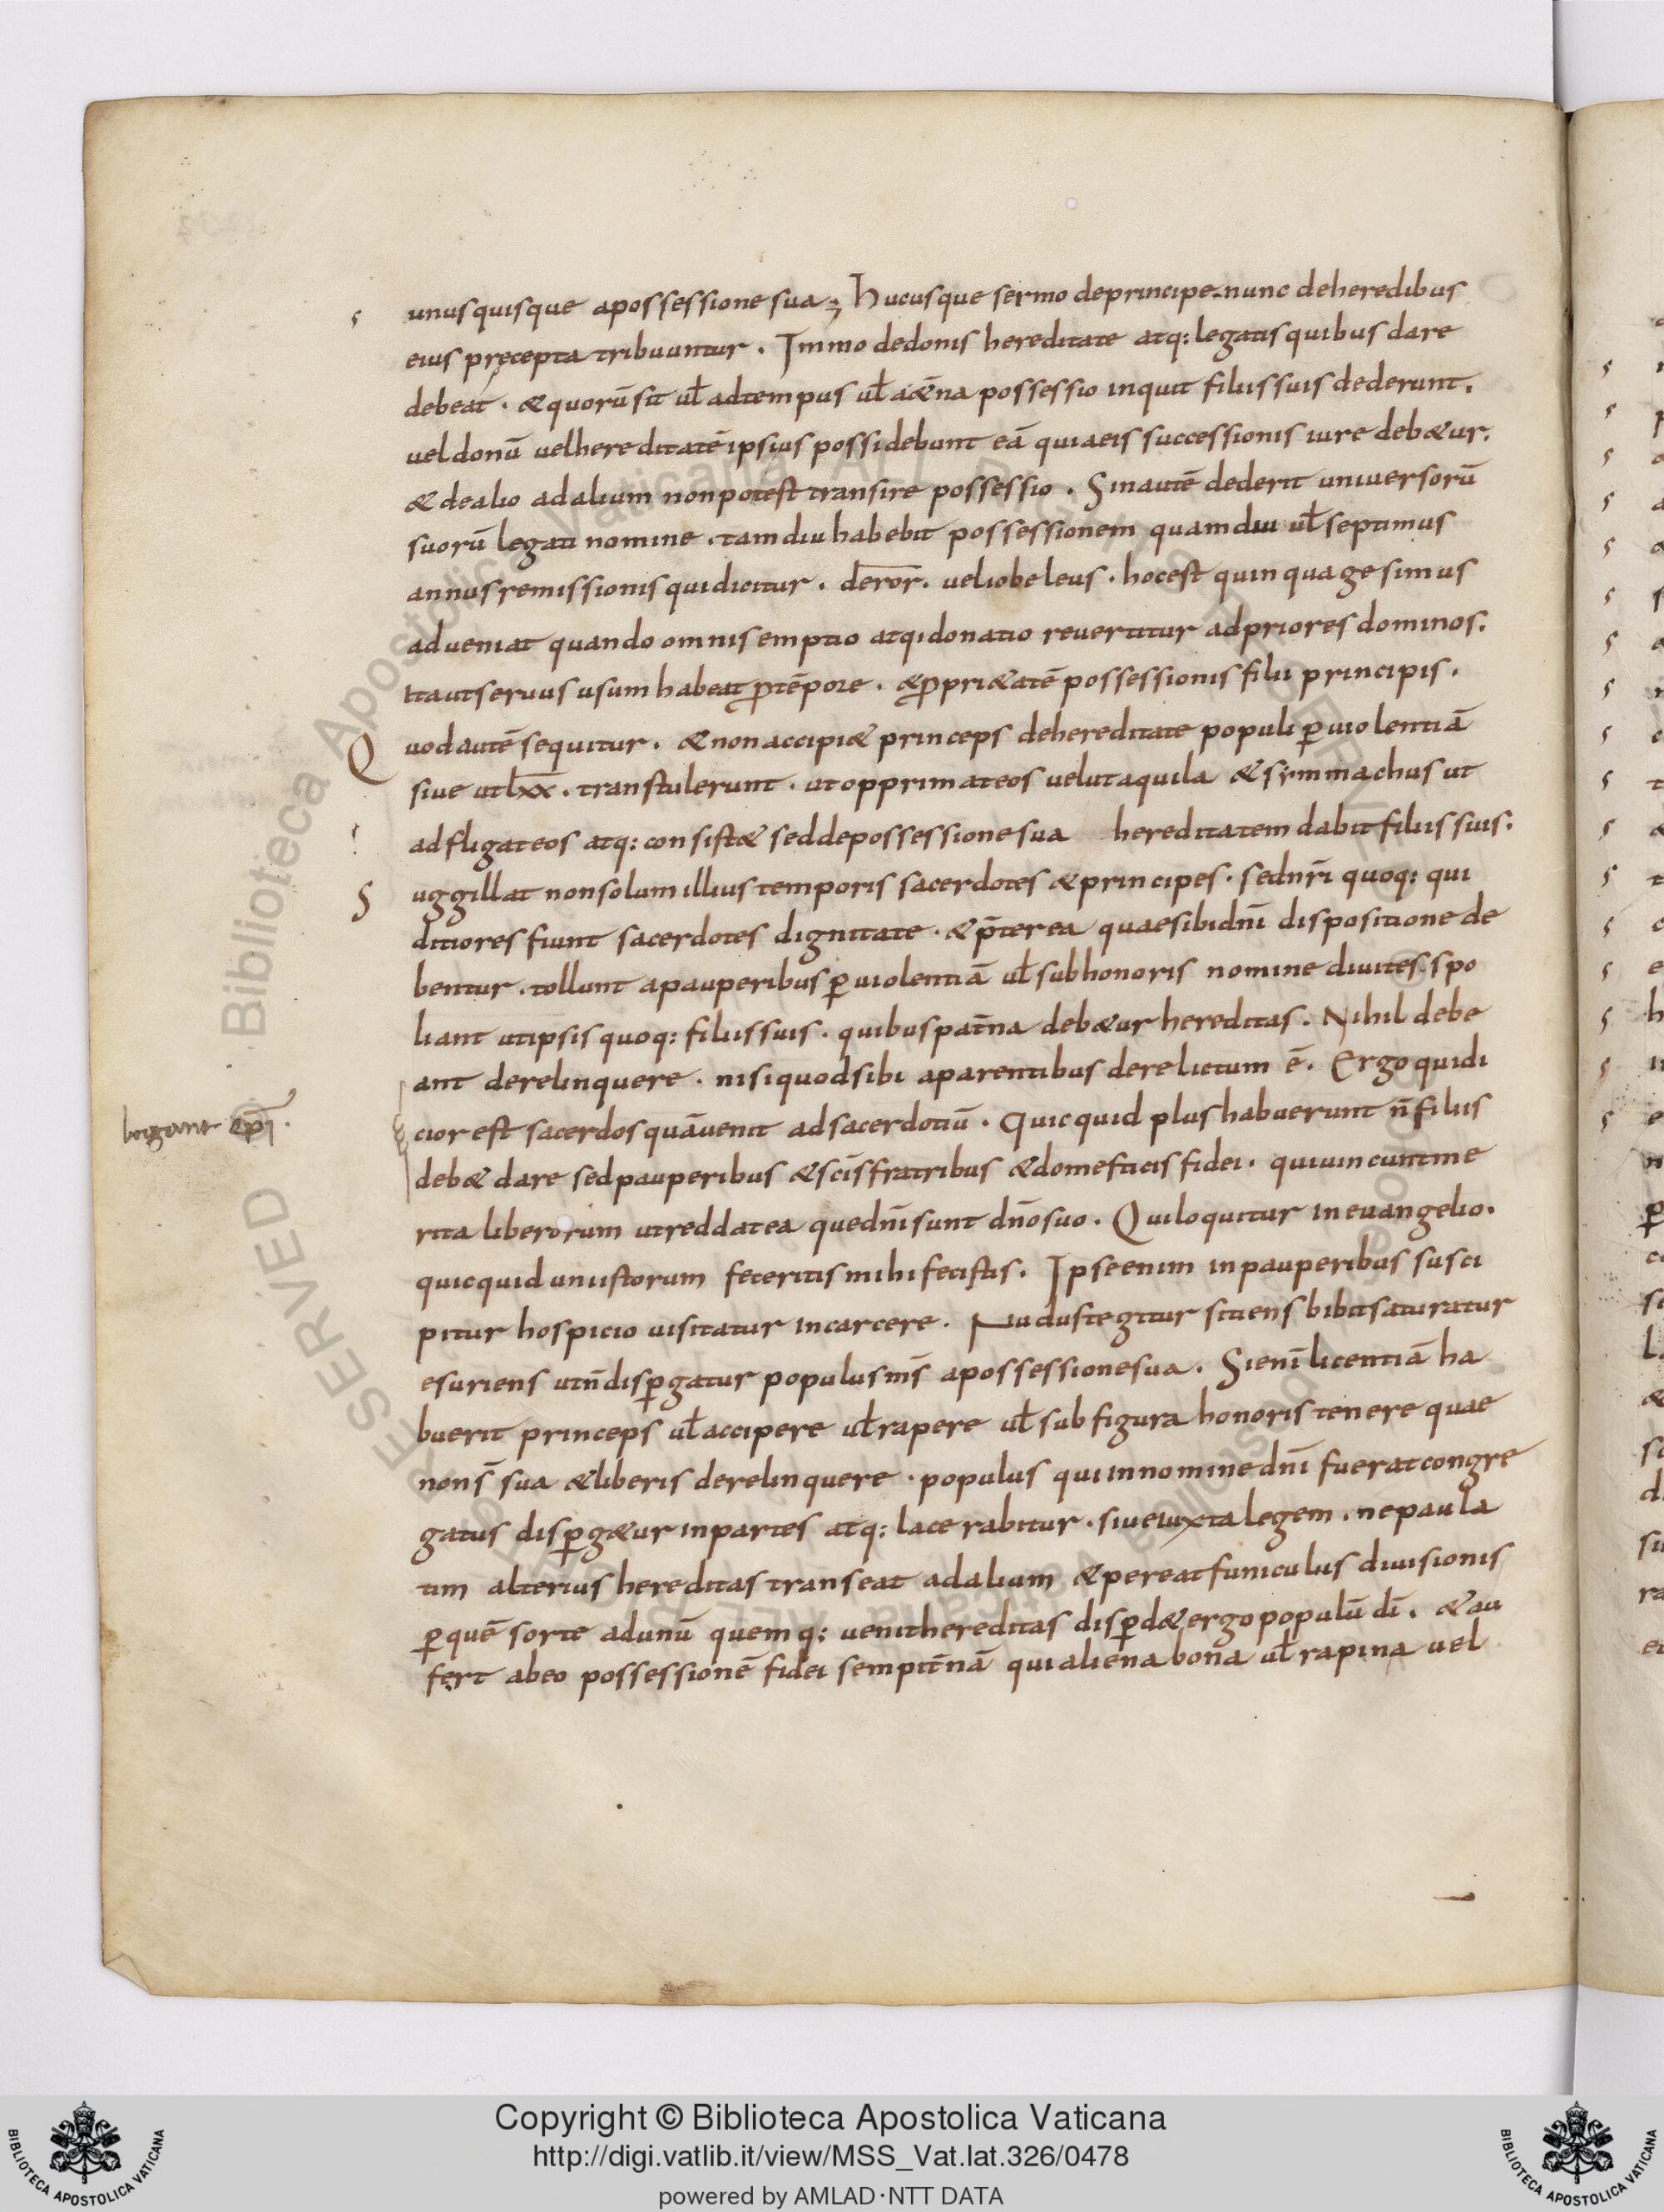 unusquisque apossessione sua; Hucusque sermo deprincipe. nunc deheredibus
eius pręcepta tribuuntur. Immo dedonis hereditate atq: legatis quibus dare
debeat. & quorū sit ul̄ adtempus ul̄ a&̄na possessio inquit filiis suis dederunt.
uel donū uel hereditatē ipsius possidebunt eā quia eis successionis iure deb&ur.
& dealio adalium nonpotest transire possessio. Sinautē dederit uniuersorū
suorū legati nomine. tamdiu habebit possessionem quamdiu ul̄ septimus
annus remissionis quidicitur. deror. ueliobeleus. hocest quinquagesimus
adueniat quando omnis emptio atqidonatio reuertitur adpriores dominos.
ita utseruus usum habeat ꝓtēpore. & ꝓpri&atē possessionis filii principis.
Quod autē sequitur. & non accipi& princeps dehereditate populi ꝑuiolentiā
siue utlxx. transtulerunt. ut opprimateos uelutaquila & symmachus ut
adfligateos atq: consist& seddepossessione sua hereditatem dabit filiis suis.
Suggillat nonsolum illius temporis sacerdotes & principes. sednr̄i quoq: qui
ditiores fiunt sacerdotes dignitate. & p̄terea quaesibidn̄i dispositione de
bentur. tollunt apauperibus ꝑuiolentiā ul̄ subhonoris nomine diuites. spo
liant utipsis quoq: filiis suis. quibus pat̄na deb&ur hereditas. Nihil debe
ant derelinquere. nisiquodsibi aparentibus derelictum ē. Ergo quidi
cior est sacerdos quāuenit adsacerdotiū. Quicquid plushabuerunt n̄ filiis
deb& dare sedpauperibus & scīs fratribus & domesticis fidei. quiuincuntme
rita liberorum utreddatea quedn̄i sunt dn̄osuo. Quiloquitur ineuangelio.
quicquid uniistorum feceritis mihifecistis. Ipseenim inpauperibus susci
pitur hospicio uisitatur incarcere. Nudustegitur sitiens bibit saturatur
esuriens utn̄disꝑgatur populus ms̄ apossessionesua. Sienī licentiā ha
buerit princeps ul̄ accipere ul̄ rapere ul̄ sub figura honoris tenere quae
nons̄ sua & liberis derelinquere. populus qui innominedn̄i fueratcongre
gatus disꝑg&ur inpartes atq: lacerabitur. siueiuxtalegem. nepaula
tim alterius hereditas transeat adalium & pereatfuniculus diuisionis
ꝑquē sorte adunū quemq: uenithereditas disꝑd& ergo populū dī. & au
fert abeo possessionē fidei sempit̄nā qui aliena bona ul̄ rapina uel
epī.
Copyright © Biblioteca Apostolica Vaticana
http://digi.vatlib.it/view/MSS_Vat.lat.326/0478
powered by AMLAD·NTT DATA
BIBLIOTECA APOSTOLICA VATICANA
BIBLIOTECA APOSTOLICA VATICANA